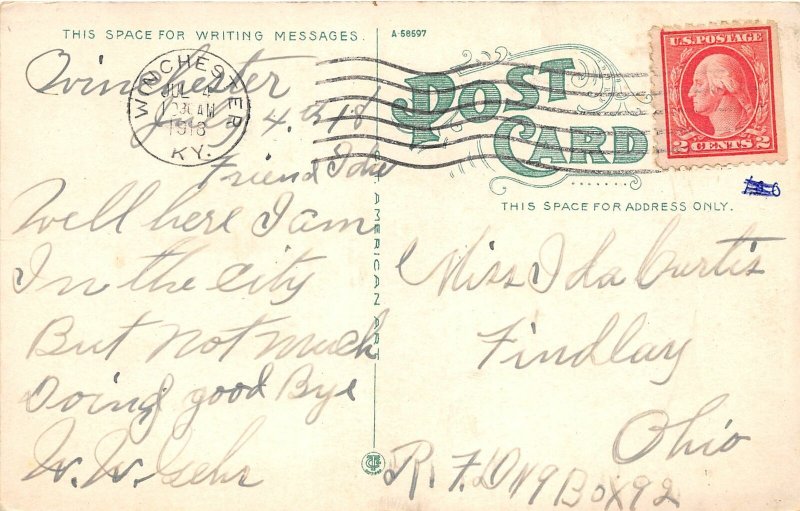 THIS SPACE FOR WRITING MESSAGES.
A-58597
POST
CARD
THIS SPACE FOR ADDRESS ONLY.
U.S. POSTAGE
2 CENTS 2
WINCHESTER
JUL 4
1918
KY.
AMERICAN ART
Winchester
July 4.th 18
Friend Ida
Well here I am
In the city
But not much
Doing good Bye
W. W. Gehr
Miss Ida Curtis
Findlay
Ohio
R. F. D N9 Box 92